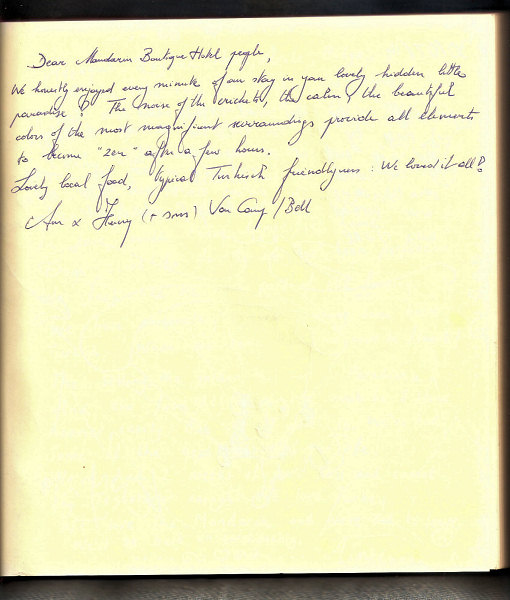 Dear Mandarin Boutique Hotel people,
We honestly enjoyed every minute of our stay in your lovely hidden little
paradise! The noise of the crickets, the calm, the beautiful
colors of the most magnificent surroundings provide all elements
to become "zen" after a few hours.
Lovely local food, typical Turkish friendlyness: We loved it all!
Ann & (+ sons) Van / Bell